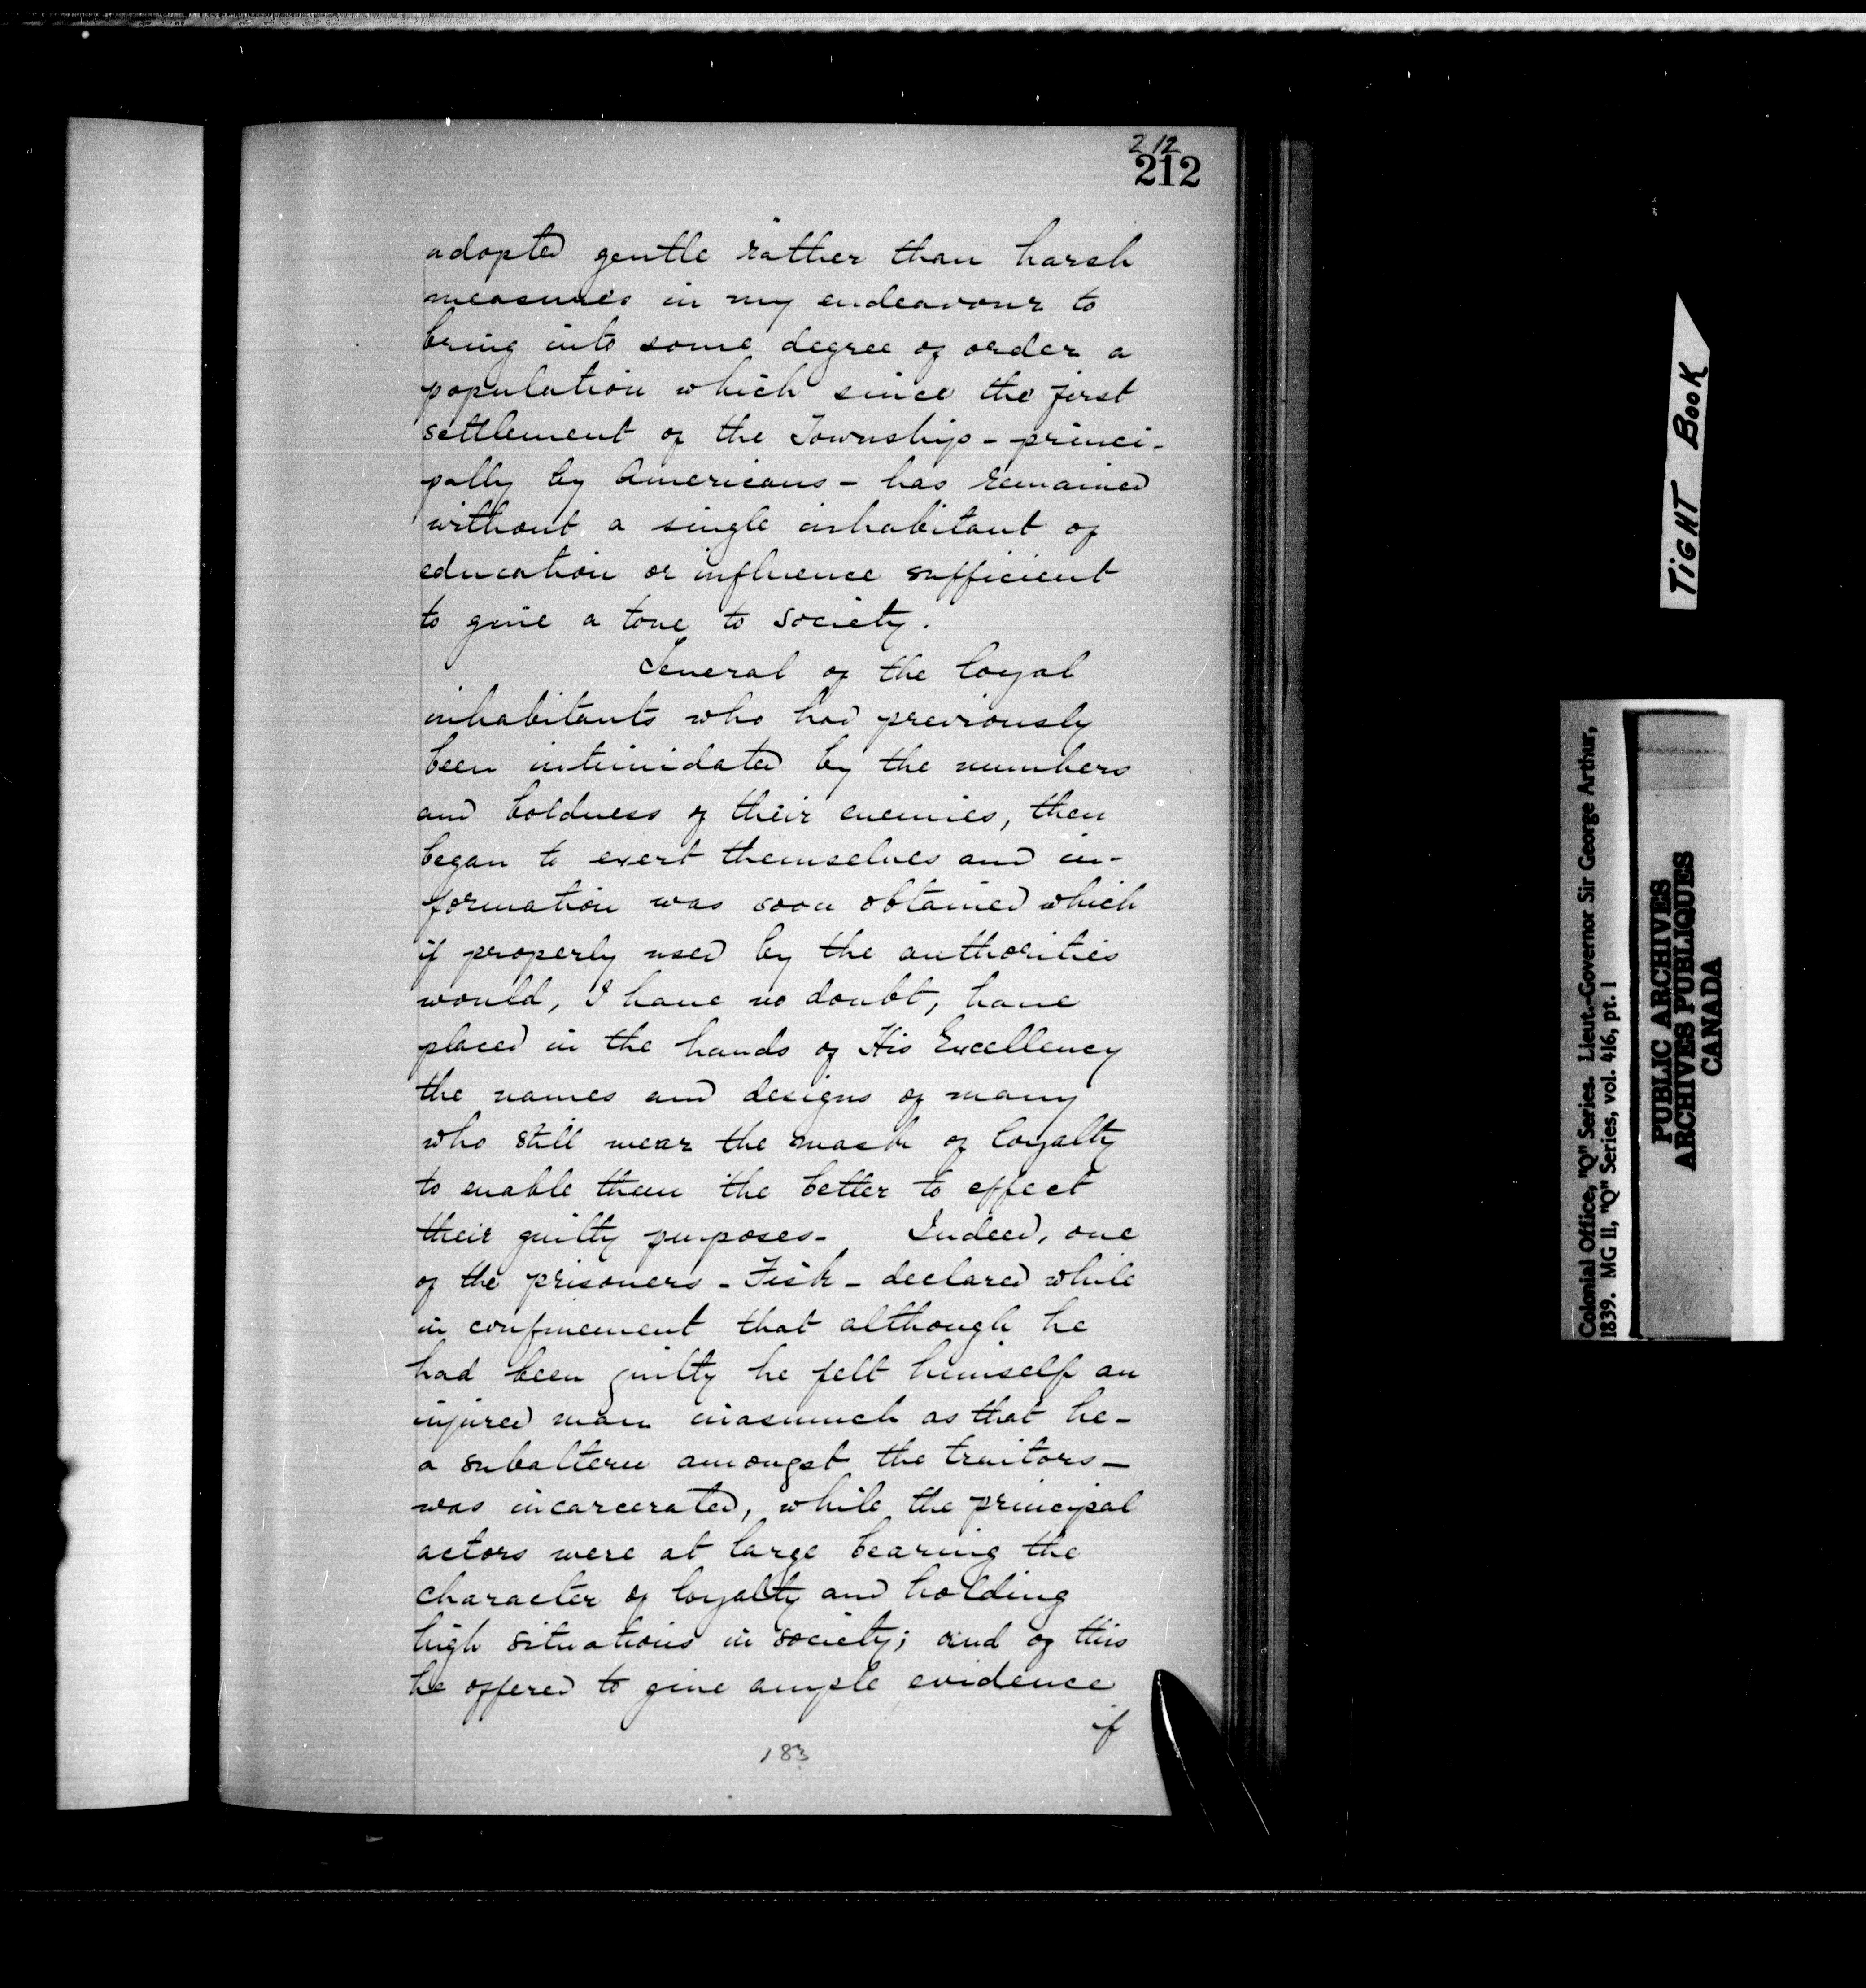 212
212
adopted gentle rather than harsh
measures in my endeavour to
bring into some degree of order a
population which since the first
settlement of the Township - princi-
pally by Americans - has remained
without a single inhabitant of
education or influence sufficient
to give a tone to society.
Several of the loyal
inhabitants who had previously
been intimidated by the numbers
and boldness of their enemies, then
began to exert themselves and in-
formation was soon obtained which
if properly used by the authorities
would, I have no doubt, have
placed in the hands of His Excellency
the names and designs of many
who still wear the mask of loyalty
to enable them the better to effect
their guilty purposes - Indeed, one
of the prisoners - Fisk - declared while
in confinement that although he
had been guilty he felt himself an
injured man inasmuch as that he -
a subaltern amongst the traitors -
was incarcerated, while the principal
actors were at large bearing the
character of loyalty and holding
high situations in society; and of this
he offered to give ample evidence
if
183
TIGHT BOOK
Colonial Office, "Q" Series. Lieut.-Governor Sir George Arthur,
1839. MG 11, "Q" Series, vol. 416, pt. 1
PUBLIC ARCHIVES
ARCHIVES PUBLIQUES
CANADA